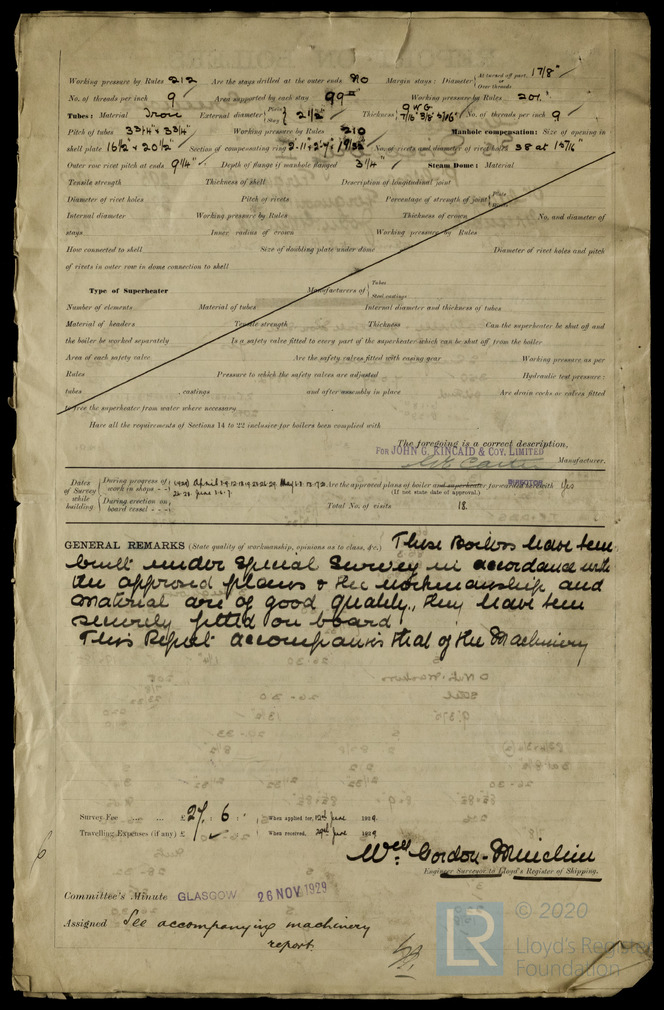 Working pressure by Rules 212 Are the stays drilled at the outer ends No Margin stays: Diameter { At turned off part, or Over threads 1 7/8"
No. of threads per inch 9 Area supported by each stay 99 Working pressure by Rules 201
Tubes: Material Iron External diameter { Plain Stay 2 1/2" Thickness { 9 W G 7/16" 3/8" 5/16" No. of threads per inch 9
Pitch of tubes 3 3/4" x 3 3/4" Working pressure by Rules 210 Manhole compensation: Size of opening in
shell plate 16 1/2" x 20 1/2" Section of compensating ring No. of rivets and diameter of rivet holes 38 at 1 5/16"
Outer row rivet pitch at ends 9 1/4" Depth of flange if manhole flanged 3 1/4" Steam Dome: Material
Tensile strength Thickness of shell Description of longitudinal joint
Diameter of rivet holes Pitch of rivets Percentage of strength of joint { Plate Rivets
Internal diameter Working pressure by Rules Thickness of crown No. and diameter of
stays Inner radius of crown Working pressure by Rules
How connected to shell Size of doubling plate under dome Diameter of rivet holes and pitch
of rivets in outer row in dome connection to shell
Type of Superheater Manufacturers of { Tubes Steel castings
Number of elements Material of tubes Internal diameter and thickness of tubes
Material of headers Tensile strength Thickness Can the superheater be shut off and
the boiler be worked separately Is a safety valve fitted to every part of the superheater which can be shut off from the boiler
Area of each safety valve Are the safety valves fitted with easing gear Working pressure as per
Rules Pressure to which the safety valves are adjusted Hydraulic test pressure:
tubes castings and after assembly in place Are drain cocks or valves fitted
to free the superheater from water where necessary
Have all the requirements of Sections 14 to 22 inclusive for boilers been complied with
The foregoing is a correct description,
FOR JOHN G. KINCAID & COY. LIMITED
Manufacturer.
Dates of Survey while building { During progress of work in shops - - (1929) April Are the approved plans of boiler and superheater forwarded herewith Yes
During erection on board vessel - - - (If not state date of approval.)
Total No. of visits 18.
GENERAL REMARKS (State quality of workmanship, opinions as to class, &c.) These Boilers have been
built under Special Survey in accordance with
the approved plans & the workmanship and
material are of good quality, they have been
securely fitted on board
This Report accompanies that of the Machinery
Survey Fee ... ... £ 27 : 6 : When applied for, 12th June 1929
Travelling Expenses (if any) £ When received, 29th June 1929
Wm Gordon-Muichin
Engineer Surveyor to Lloyd's Register of Shipping.
Committee's Minute GLASGOW 26 NOV 1929
Assigned See accompanying machinery
report.
LR © 2020
Lloyd's Register
Foundation